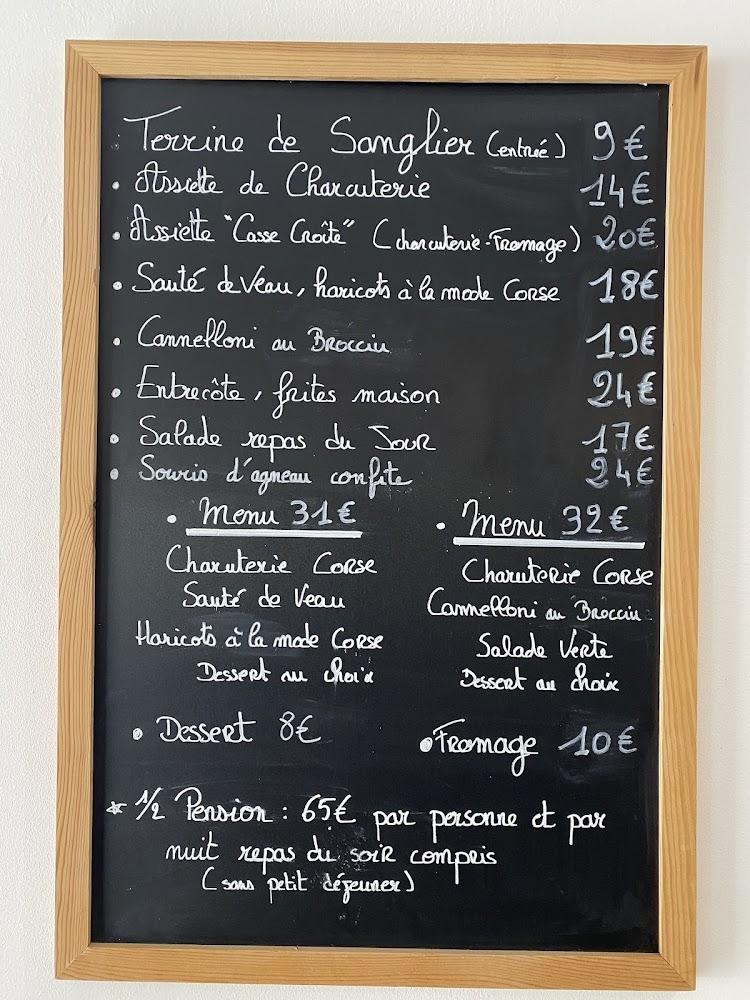 · Terrine de Sanglier (entrée) 9€
· Assiette de Charcuterie 14€
· Assiette "Casse Croîte" (charcuterie-Fromage) 20€
· Sauté de Veau, haricots à la mode Corse 18€
· Cannelloni au Brocciu 19€
· Entrecôte, frites maison 24€
· Salade repas du Jour 17€
· Souris d'agneau confite 24€
· Menu 31€
Charcuterie Corse
Sauté de Veau
Haricots à la mode Corse
Dessert au choix
· Menu 32€
Charcuterie Corse
Cannelloni au Brocciu
Salade Verte
Dessert au choix
· Dessert 8€
· Fromage 10€
* 1/2 Pension : 65€ par personne et par
nuit repas du soir compris
(sans petit déjeuner)